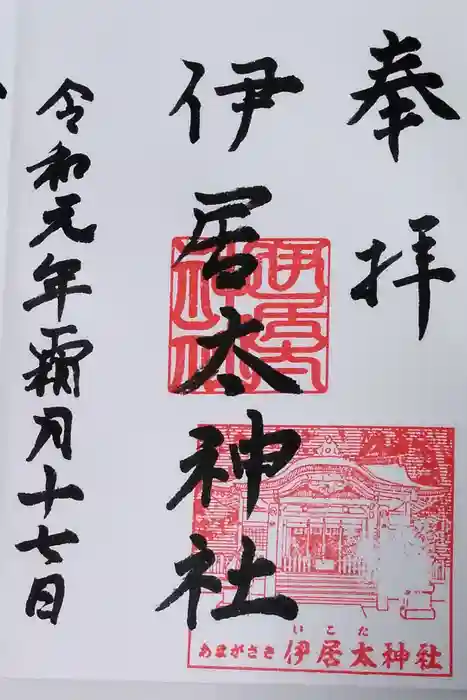 奉拝
伊居太神社
伊居太神社
令和元年霜月十七日
いこた
あまがさき 伊居太神社